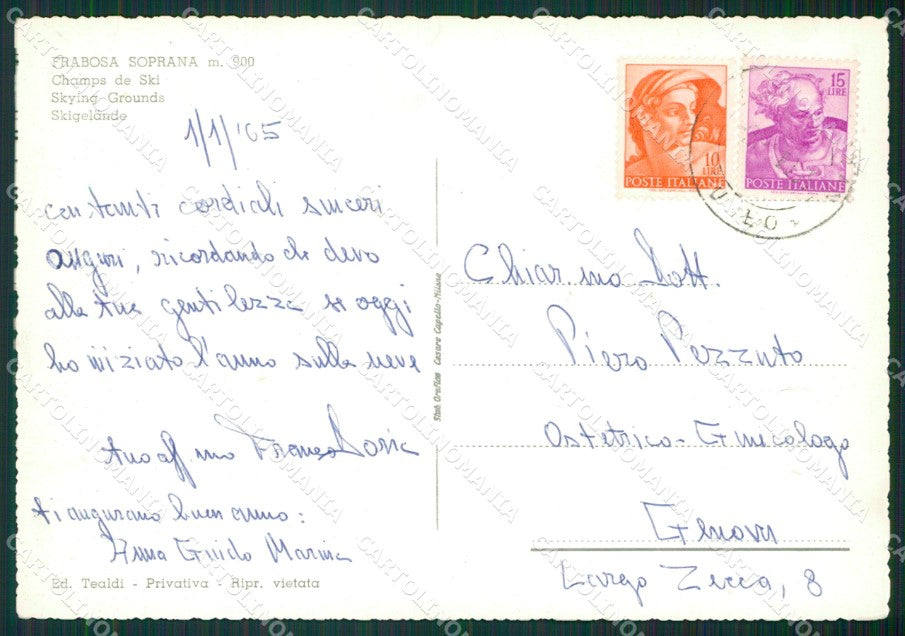 FRABOSA SOPRANA m. 900
Champs de Ski
Skying-Grounds
Skigelände
1/1/'65
costanti cordiali sinceri
auguri, ricordando che devo
alla tua gentilezza se oggi
ho iniziato l'anno sulla neve
Tuo aff.mo Franco Doria
ti augurano buon anno:
Anna Guido Marina
Ed. Tealdi - Privativa - Ripr. vietata
Stab. Grafico Cesare Capello-Milano
10
LIRE
POSTE ITALIANE
15
LIRE
POSTE ITALIANE
Chiar.mo Dott.
Piero Pezzuto
Ostetrico-Ginecologo
Genova
Largo Zecca, 8
CARTOLINOMANIA